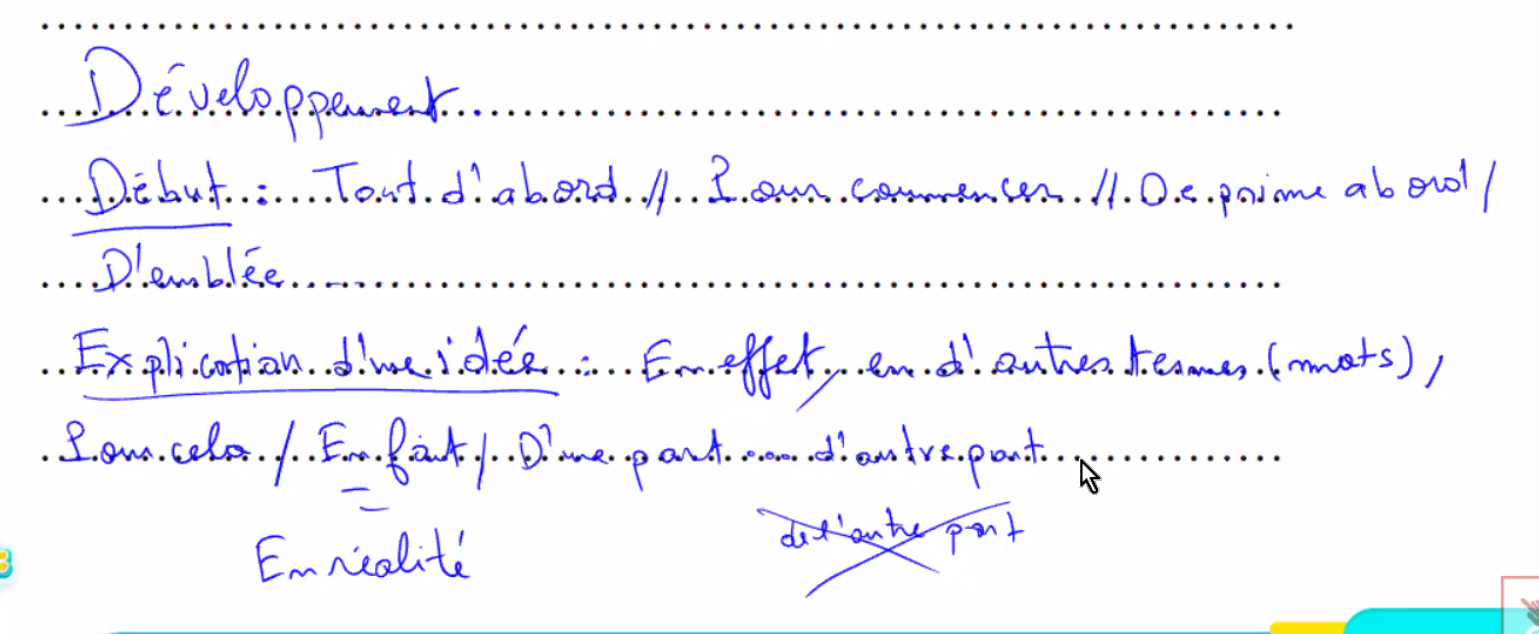 Développement
Début : Tout d'abord // Pour commencer // De prime abord /
D'emblée
Explication d'une idée : En effet, en d'autres termes (mots),
Pour cela / En fait / D'une part .... d'autre part
de l'autre part
En réalité